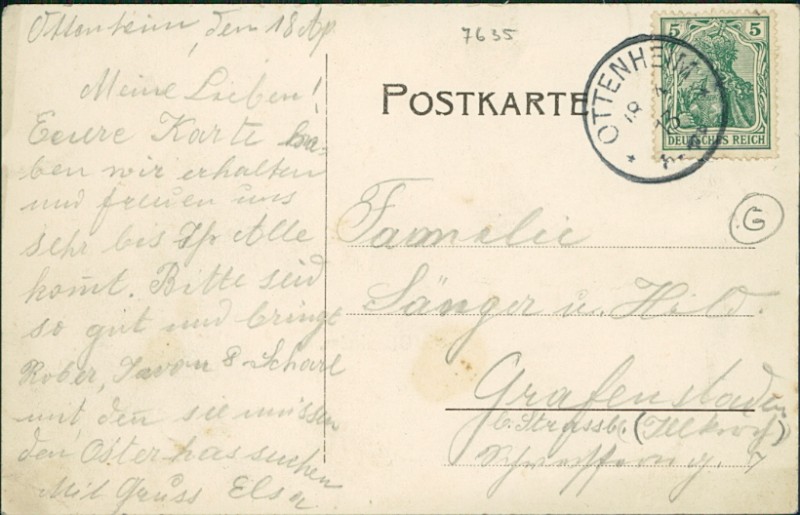 Ottenheim, den 18 Ap
Meine Lieben!
Eeure Karte ha-
ben wir erhalten
und freuen uns
sehr bis Ihr Alle
komt. Bitte seid
so gut und bringt
Rober, &
mit, denn sie müssen
den Osterhas suchen
Mit Gruss Elsa
7635
POSTKARTE
OTTENHEIM
18
5 5
DEUTSCHES REICH
G
Familie
Sänger u. Hild.
Grafenstaden
b. Strassb. (Illkirch)
7